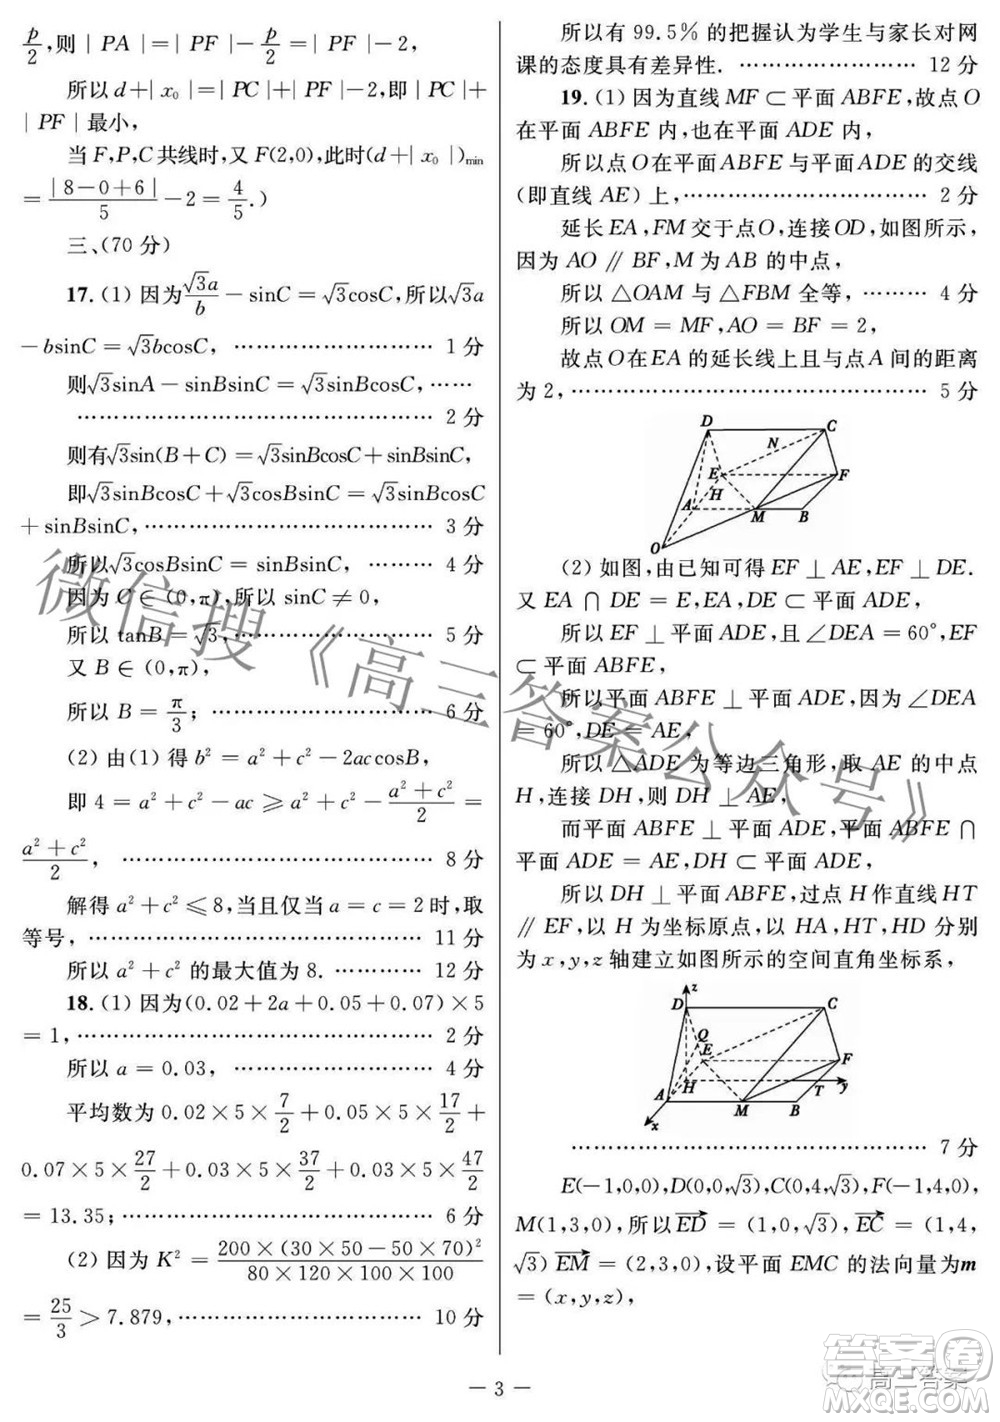 p/2,则|PA|=|PF|-p/2=|PF|-2,
所以 d+|x₀|=|PC|+|PF|-2,即|PC|+
|PF|最小,
当 F,P,C 共线时,又 F(2,0),此时(d+|x₀|)min
=|8-0+6|/5-2=4/5.)
三、(70 分)
17.(1) 因为√3a/b-sinC=√3cosC,所以√3a
-bsinC=√3bcosC, ……………………… 1 分
则√3sinA-sinBsinC=√3sinBcosC, ……
……………………………………… 2 分
则有√3sin(B+C)=√3sinBcosC+sinBsinC,
即√3sinBcosC+√3cosBsinC=√3sinBcosC
+sinBsinC, ……………………………… 3 分
所以√3cosBsinC=sinBsinC, ……… 4 分
因为 C∈(0,π),所以 sinC≠0,
所以 tanB=√3, ……………………… 5 分
又 B∈(0,π),
所以 B=π/3; ………………………… 6 分
(2) 由(1) 得 b²=a²+c²-2accosB,
即 4=a²+c²-ac⩾a²+c²-(a²+c²)/2=
(a²+c²)/2, ………………………………… 8 分
解得 a²+c²⩽8,当且仅当 a=c=2 时,取
等号, …………………………………… 11 分
所以 a²+c² 的最大值为 8. ………… 12 分
18.(1) 因为(0.02+2a+0.05+0.07)×5
=1, ……………………………………… 2 分
所以 a=0.03, ……………………… 4 分
平均数为 0.02×5×7/2+0.05×5×17/2+
0.07×5×27/2+0.03×5×37/2+0.03×5×47/2
=13.35; ………………………………… 6 分
(2) 因为 K²=200×(30×50-50×70)²/(80×120×100×100)
=25/3>7.879, …………………………… 10 分
所以有 99.5% 的把握认为学生与家长对网
课的态度具有差异性. …………………… 12 分
19.(1) 因为直线 MF⊂平面 ABFE,故点 O
在平面 ABFE 内,也在平面 ADE 内,
所以点 O 在平面 ABFE 与平面 ADE 的交线
(即直线 AE) 上, ………………………… 2 分
延长 EA,FM 交于点 O,连接 OD,如图所示,
因为 AO∥BF,M 为 AB 的中点,
所以 △OAM 与 △FBM 全等, ……… 4 分
所以 OM=MF,AO=BF=2,
故点 O 在 EA 的延长线上且与点 A 间的距离
为 2, ……………………………………… 5 分
D
C
N
E
F
H
A
M
B
O
(2) 如图,由已知可得 EF⊥AE,EF⊥DE.
又 EA∩DE=E,EA,DE⊂平面 ADE,
所以 EF⊥平面 ADE,且∠DEA=60°,EF
⊂平面 ABFE,
所以平面 ABFE⊥平面 ADE,因为∠DEA
=60°,DE=AE,
所以 △ADE 为等边三角形,取 AE 的中点
H,连接 DH,则 DH⊥AE,
而平面 ABFE⊥平面 ADE,平面 ABFE∩
平面 ADE=AE,DH⊂平面 ADE,
所以 DH⊥平面 ABFE,过点 H 作直线 HT
∥EF,以 H 为坐标原点,以 HA,HT,HD 分别
为 x,y,z 轴建立如图所示的空间直角坐标系,
z
D
C
Q
E
F
A
H
T
y
M
B
x
……………………………………… 7 分
E(-1,0,0),D(0,0,√3),C(0,4,√3),F(-1,4,0),
M(1,3,0),所以ED→=(1,0,√3),EC→=(1,4,
√3) EM→=(2,3,0),设平面 EMC 的法向量为 m
=(x,y,z),
— 3 —
微信搜《高三答案公众号》
答案圈
高三答案